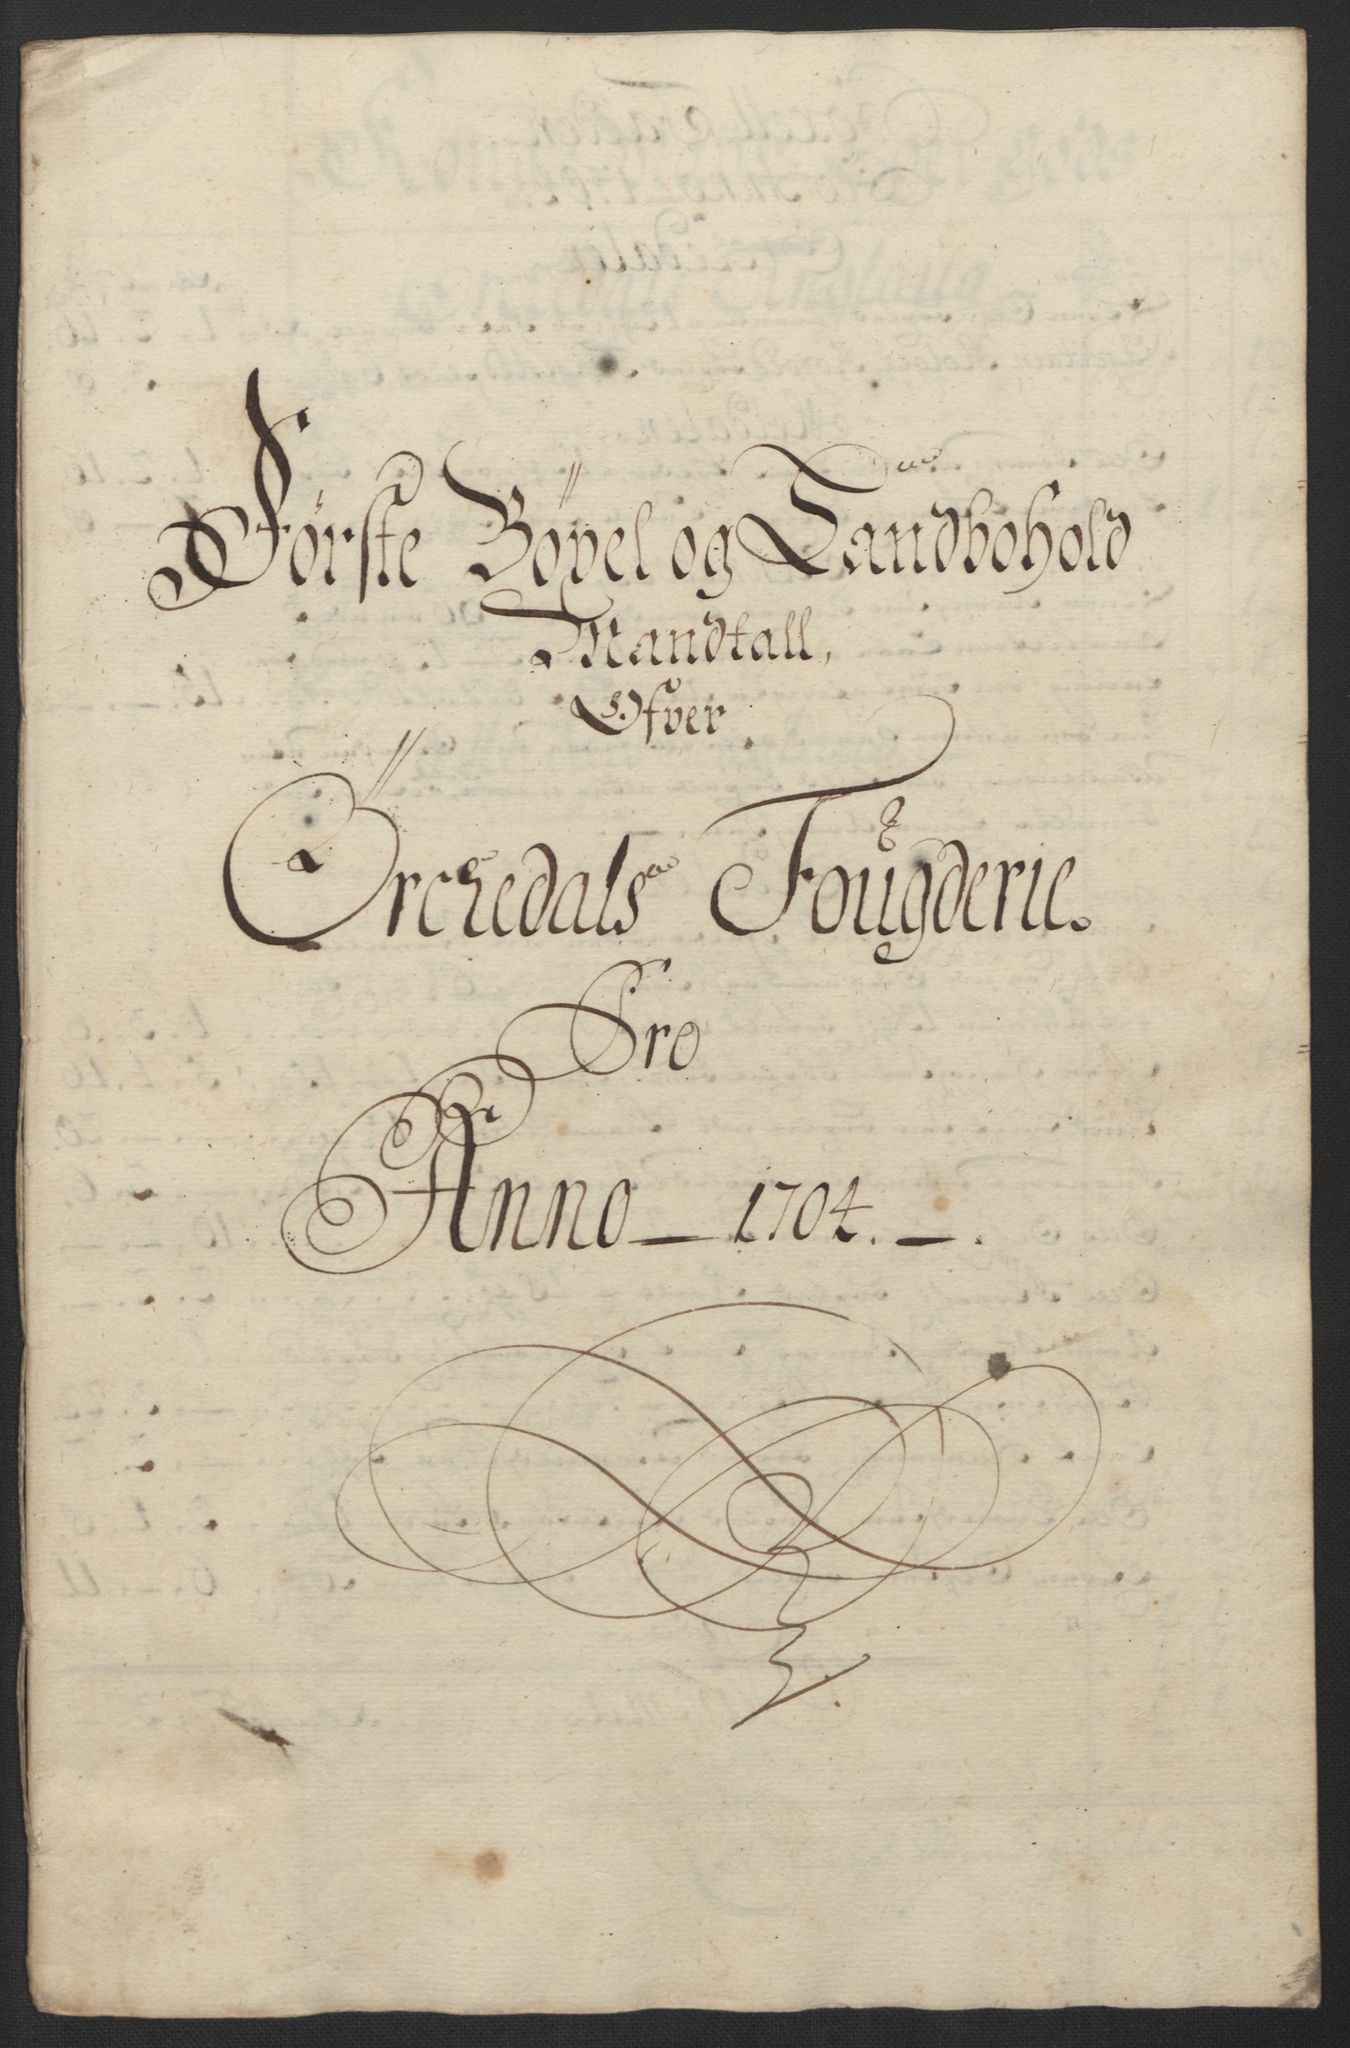 Förste Böxel og Landbohold
Mandtall,
Ofver
Örchedals Fougderie.
Pro
Anno — 1704. —.